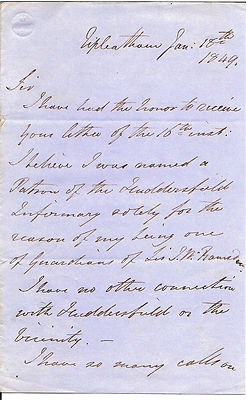 Upleatham Jan: 18th
1849.
Sir
I have had the honor to receive
your letter of the 16th inst:
I believe I was named a
Patron of the Huddersfield
Infirmary solely for the
reason of my being one
of Guardians of Sir J. W. Ramsden
I have no other connection
with Huddersfield or the
Vicinity. —
I have so many calls on